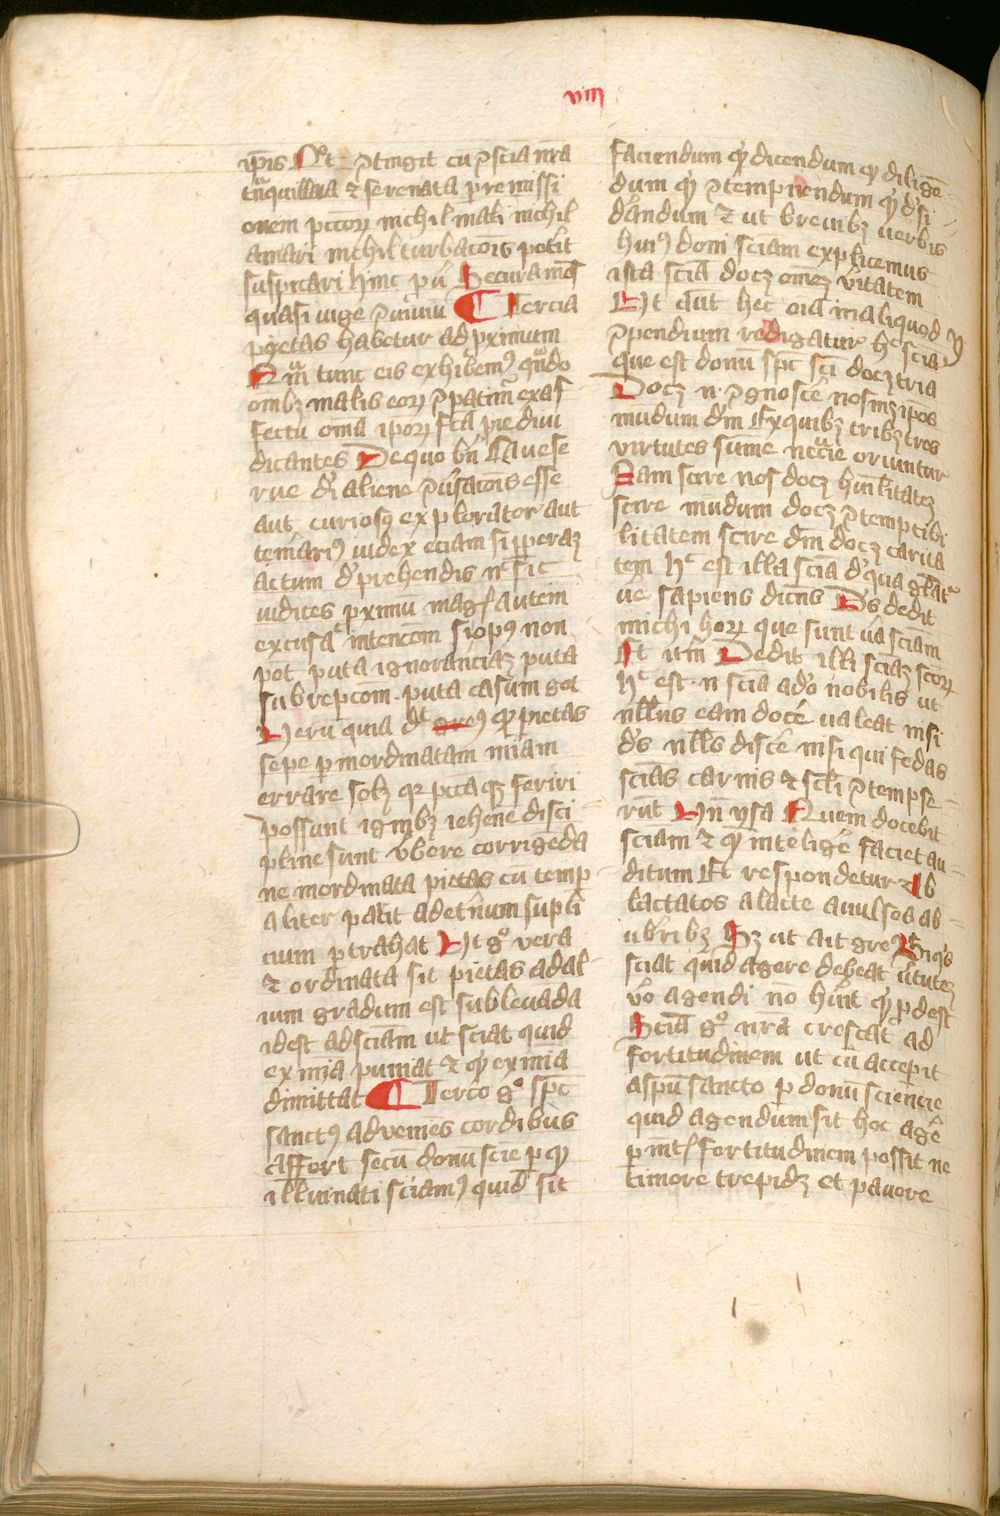 viii
ip̄is Nº t̄ ꝯtingit cū ꝯscīa nr̄a
tnͣquillata ⁊ serenata per remissi
onem pctōꝝ nichil mali nichil
amari nichil turbacōis potit
suspicari hinc
quasi iuge ꝯuiuiū Tercia
pietas habetur ad pximum
tunc eis exhibemꝰ qn̄do
omībꝫ malis eoꝝ ꝯpatim̄ exaf
fectu om̄ia ipoꝝ fcā pie diiu
dicantes De quo bn̄ Cauese
rue dī aliene ꝯūsacōis esse
aut curiosꝰ explorator aut
temͬariꝰ iudex eciam si ꝑperaꝫ
actum dͬprehendis nͨ sic
iudices pximū mag͛ autem
excusa intencōm si opꝰ non
pōt puta ignoranciaꝫ puta
subrepcōm puta casum
Uerū quia dt̄ qꝫ pietas
sepe ꝑ inordinatam mīam
errare solꝫ qꝛ pctā qꝫ feriri
possunt ignibꝫ iehenne disci
pline sunt ūbere corrigēda
ne inordinata pietas cū tempͬ
aliter pacit ad etͬnum supli
cium ꝑtrahat Ut gº vera
⁊ ordinata sit pietas ad al
ium gradum est subleuāda
idest ad scīam ut sciat quid
ex mīa puniat ⁊ qꝫ ex mīa
dimittat Tercō gº sp̄c
sanctꝰ adveniēs cordibus
affert secū donū scīe ꝑ qꝫ
illuinati sciamꝰ quid sit
faciendum qꝫ dicendum qꝫ diligē
dum qꝫ ꝯtempnendum qꝫ dͬsi
dͬandum ⁊ ut breuibꝫ uerbis
huiꝰ doni scīam explicemus
ista scīa docꝫ om̄eꝫ vͬitatem
Et dūt hec oīa in aliquod
ꝯpendium redigatur hͨ scīa
que est donū sp̄c sc̄i docꝫ tria
Docꝫ n̄ ꝯgnoscͬe nosmꝫ ip̄os
mūdum dm̄ Ex quibꝫ tribꝫ tres
virtutes sūme nccͣie oriuntur
Nam scire nos docꝫ hūilitateꝫ
scire mūdum docꝫ ꝯtemptibi
litatem scire dm̄ docꝫ carita
tem hͨ est illa scīa dͬ qua
ue sapiens dicēs Ds dedit
michi hoꝝ que sunt ūa scīam
Et itm̄ Dedit illi sciaꝫ scōꝝ
hͨ est n̄ scīa adº nobilis ut
nll̄us eam docͬe ualeat nisi
dͬs nll̄s discͬe nisi qui fedas
scīas carnis ⁊ scl̄i ꝯtempse
rūt Un̄ ysa Quem docebit
sciam ⁊ qꝫ inteligͬe faciet au
ditum Et respondetur Ab
lactatos a lacte auulsos ab
ubͬibꝫ Sꝫ ut ait gre Si qͥs
sciat quid agere debeat ūtuteꝫ
ūo agendi nō hūit qꝫ ꝓdest
Scīa gº nr̄a crescat ad
fortitudinem ut cū acceperit
a spū sancto ꝑ donū sciencie
quid agendum sit hoc agͬe
fortitudinem possit ne
timore trepidꝫ et pauore